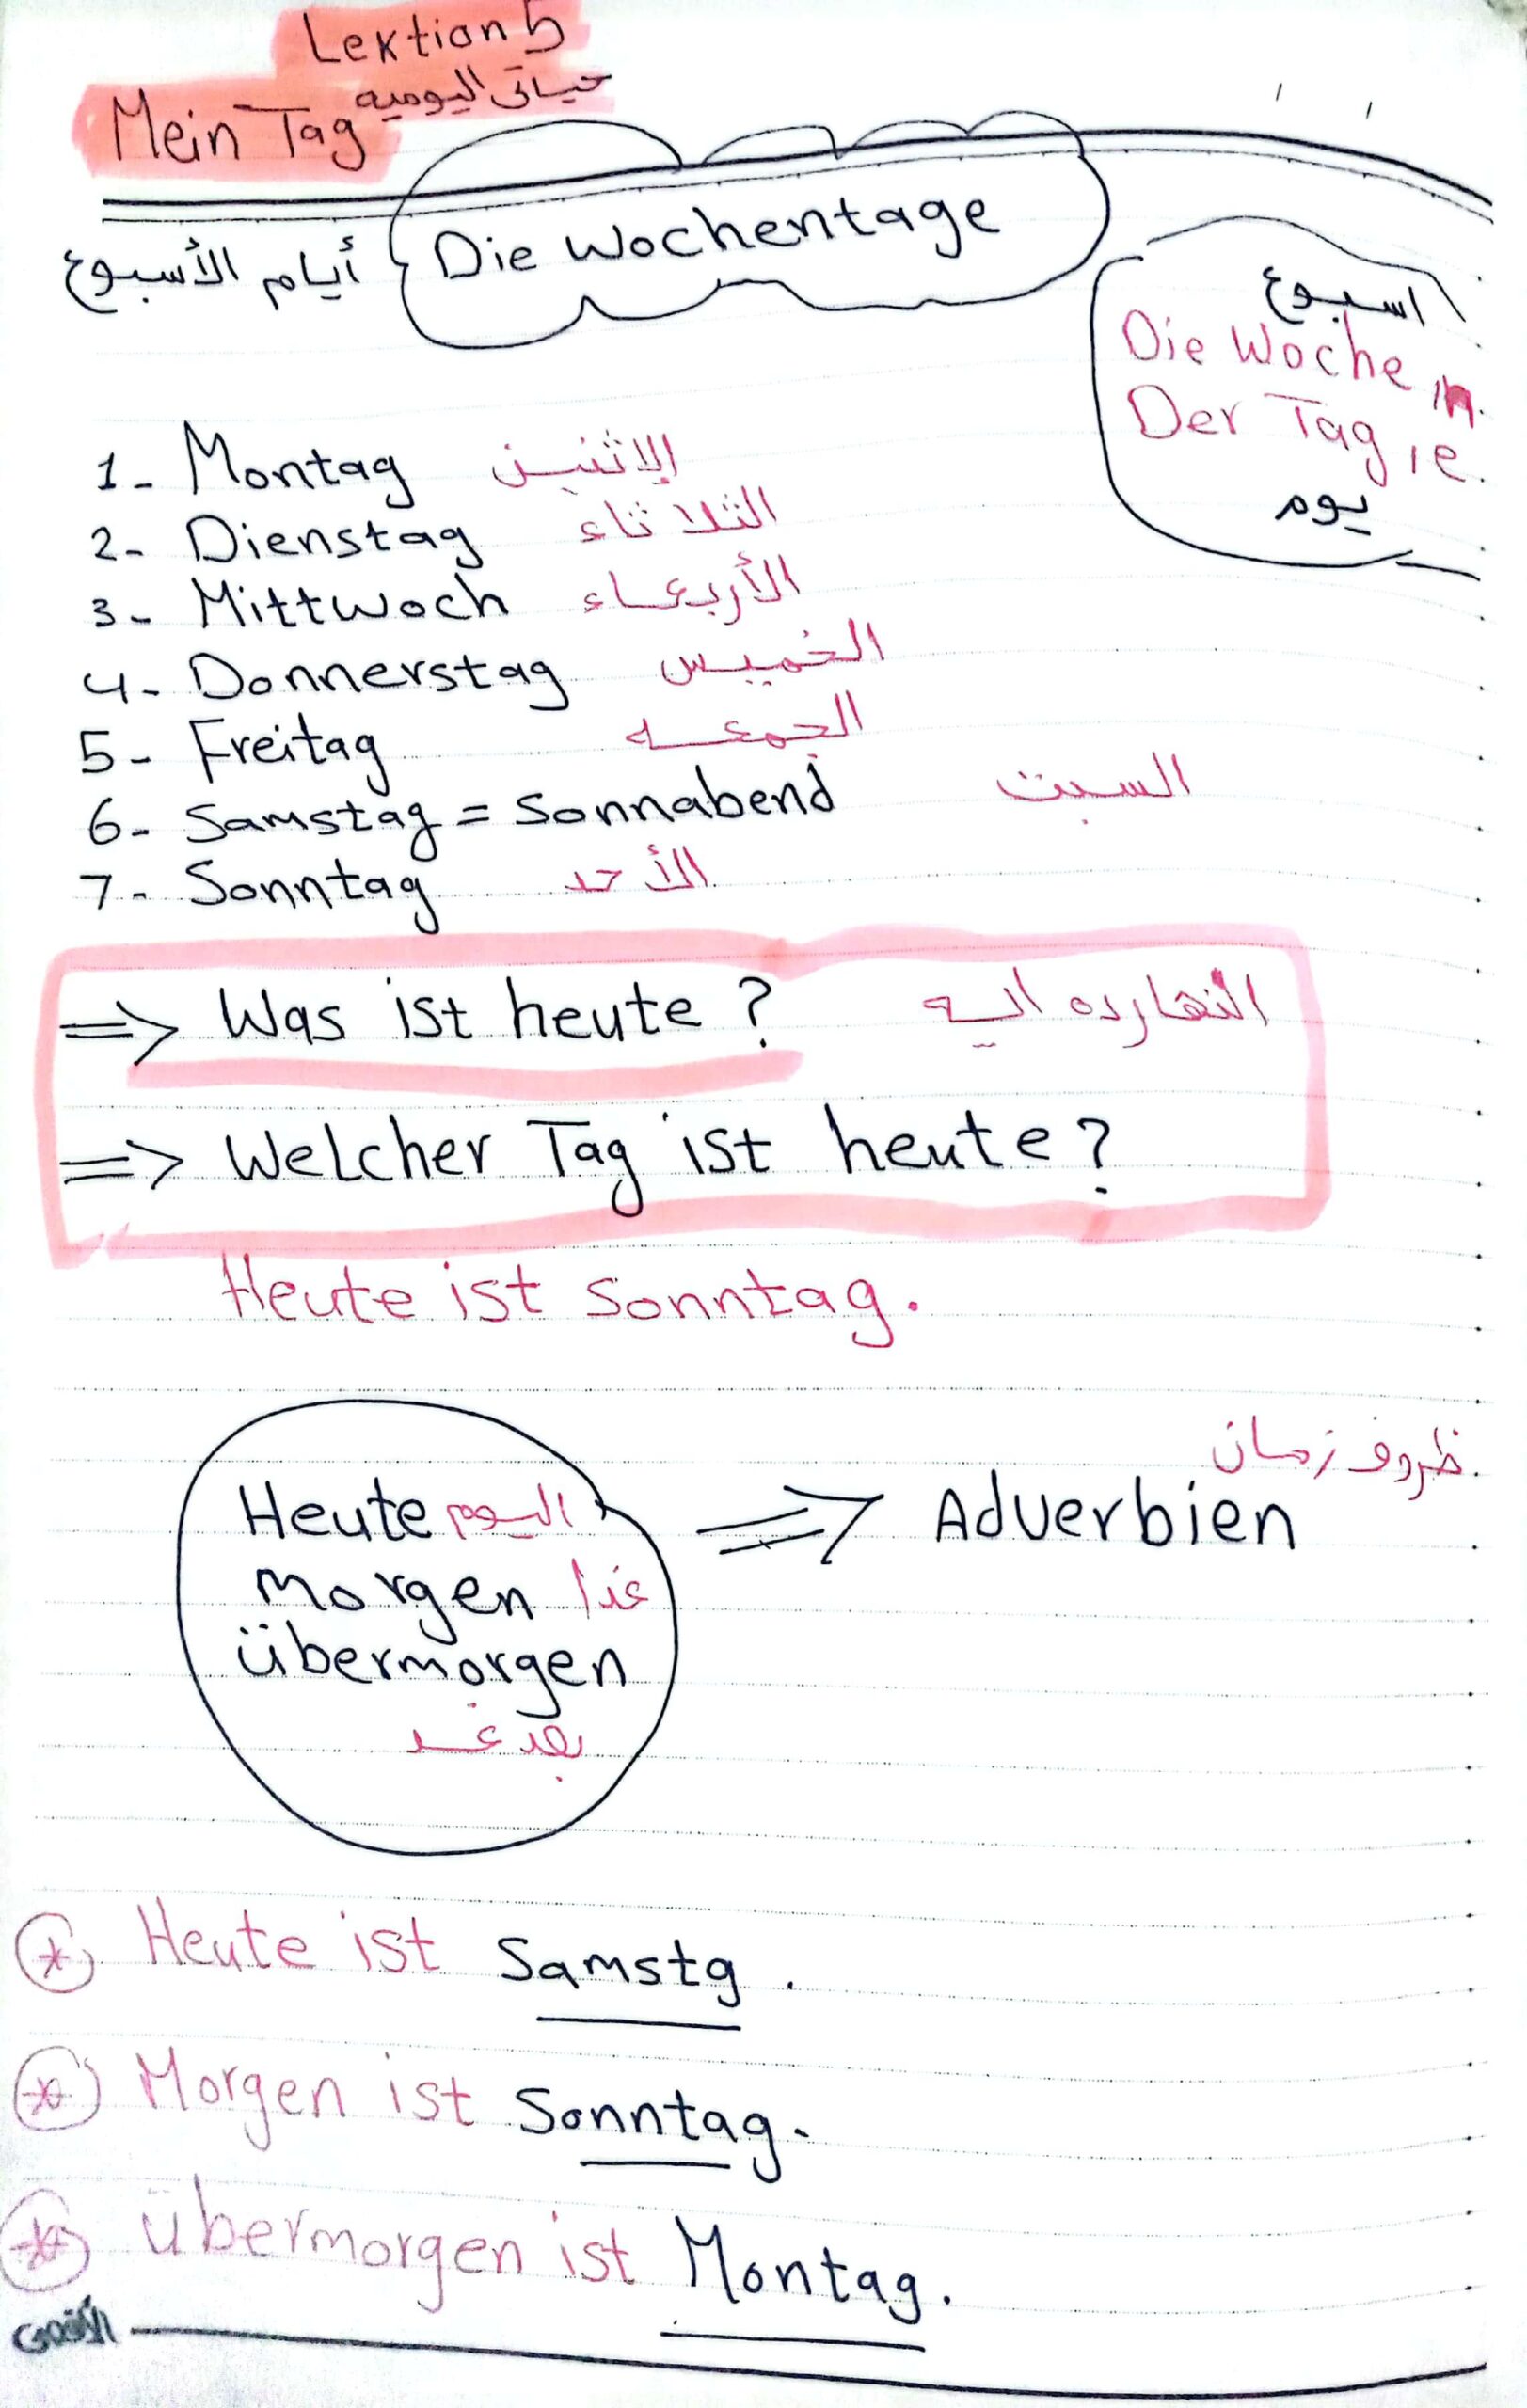 Lektion 5
Mein Tag حياتى اليوميه
Die Wochentage أيام الأسبوع
اسبوع
Die Woche, n.
Der Tag, e.
يوم
1- Montag الإثنين
2- Dienstag الثلاثاء
3- Mittwoch الأربعاء
4- Donnerstag الخميس
5- Freitag الجمعه
6- Samstag = Sonnabend السبت
7- Sonntag الأحد
=> Was ist heute? النهارده ايه
=> Welcher Tag ist heute?
Heute ist Sonntag.
ظروف زمان
Heute اليوم => Adverbien
morgen غدا
übermorgen
بعد غد
* Heute ist Samstg.
* Morgen ist Sonntag.
* übermorgen ist Montag.
الأقصى